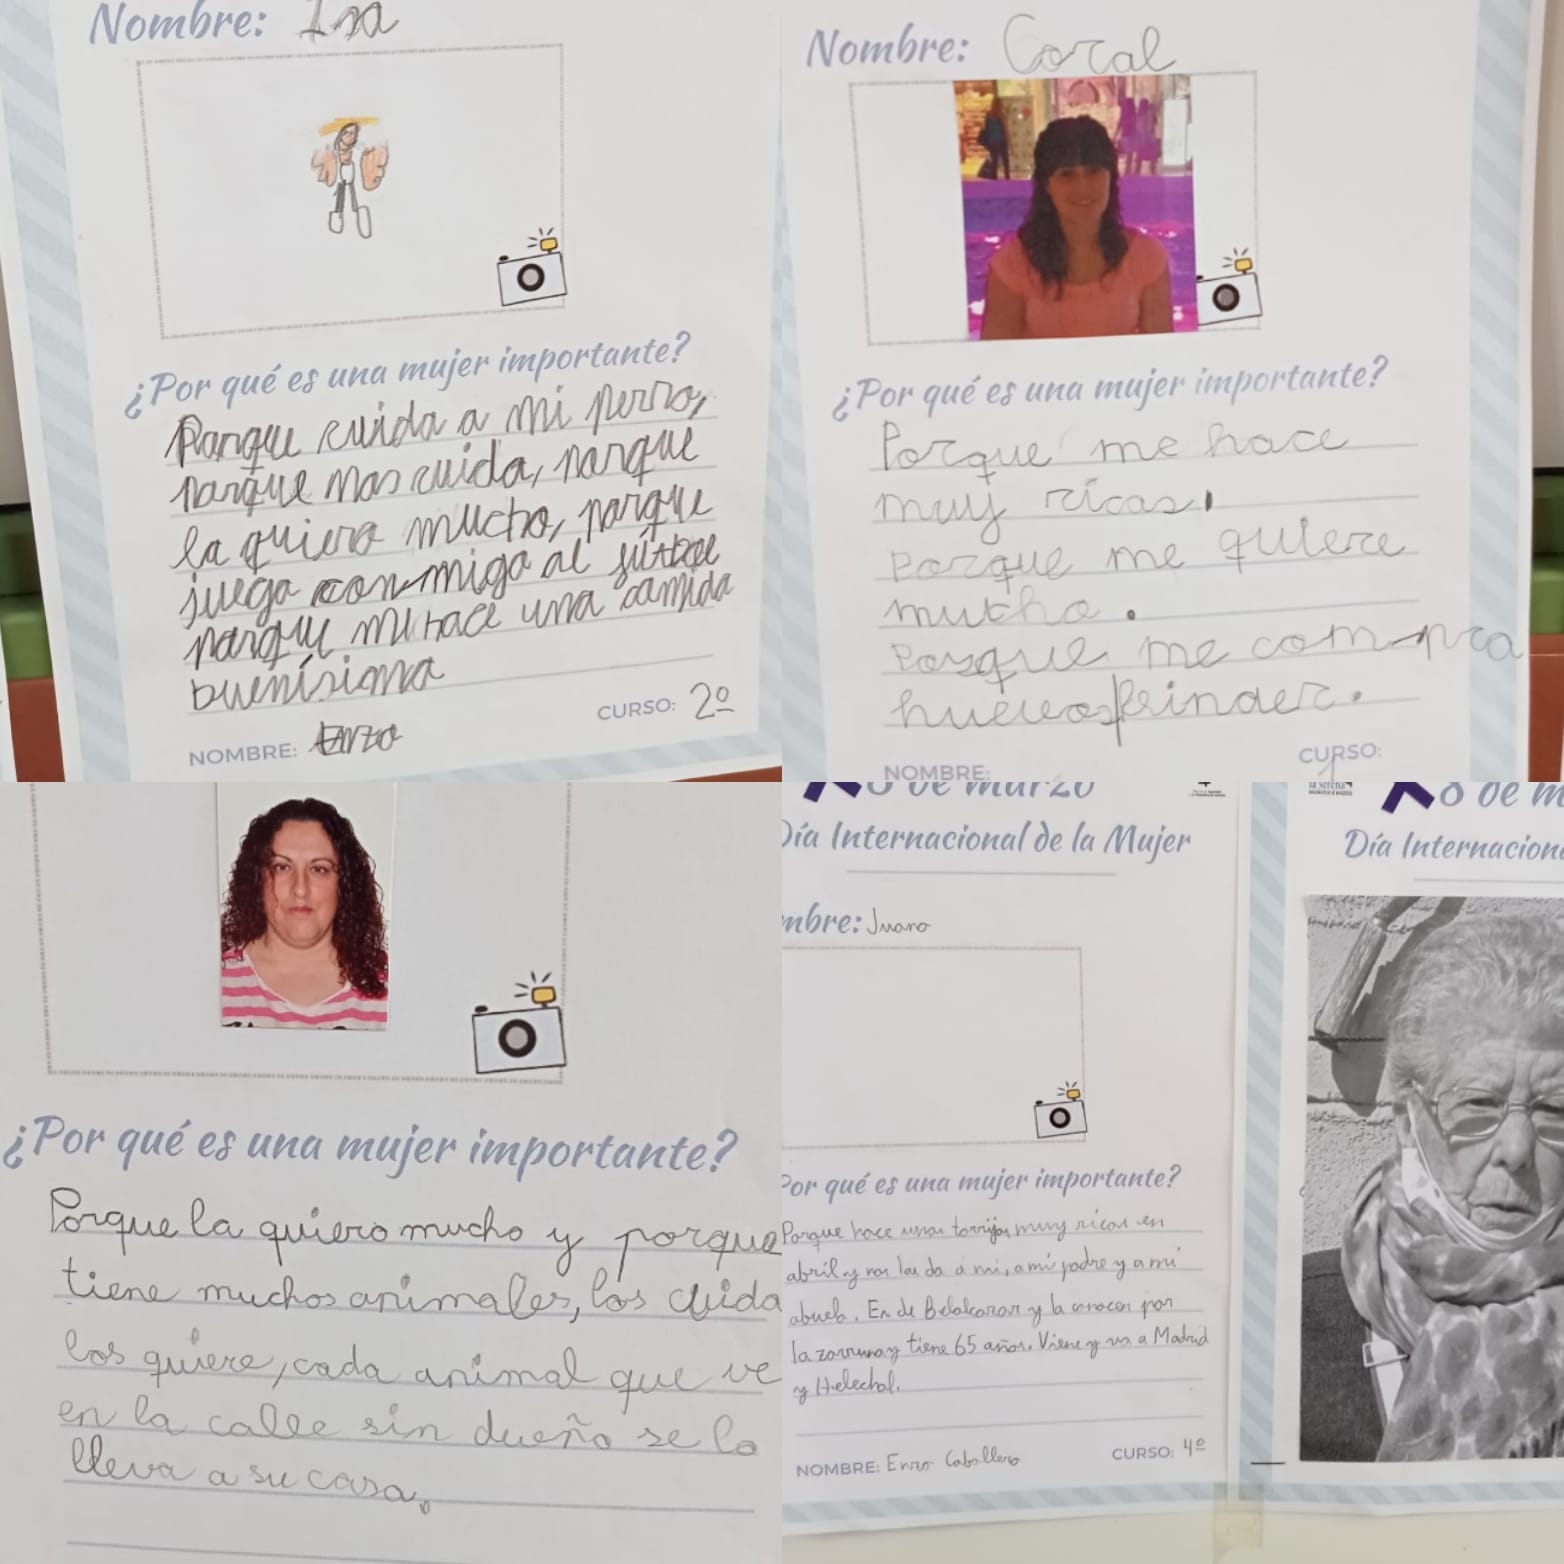 Nombre: Isa
¿Por qué es una mujer importante?
Porque cuida a mi perro,
porque nos cuida, porque
la quiero mucho, porque
juega conmigo al fútbol
porque me hace una comida
buenísima
CURSO: 2º
NOMBRE: Enzo
Nombre: Coral
¿Por qué es una mujer importante?
Porque me hace
muy ricas.
Porque me quiere
mucho.
Porque me compra
huevos kinder.
CURSO:
NOMBRE:
¿Por qué es una mujer importante?
Porque la quiero mucho y porque
tiene muchos animales, los cuida
los quiere, cada animal que ve
en la calle sin dueño se lo
lleva a su casa.
8 de marzo
Día Internacional de la Mujer
mbre: Juana
Por qué es una mujer importante?
Porque hace unas torrijas muy ricas en
abril y nos las da a mi, a mi padre y a mi
abuela. Es de Belalcazar y la conocen por
la zorruna y tiene 65 años. Viene y va a Madrid
y Helechal.
NOMBRE: Enzo Caballero
CURSO: 4º
la serena
8 de m
Día Internacion